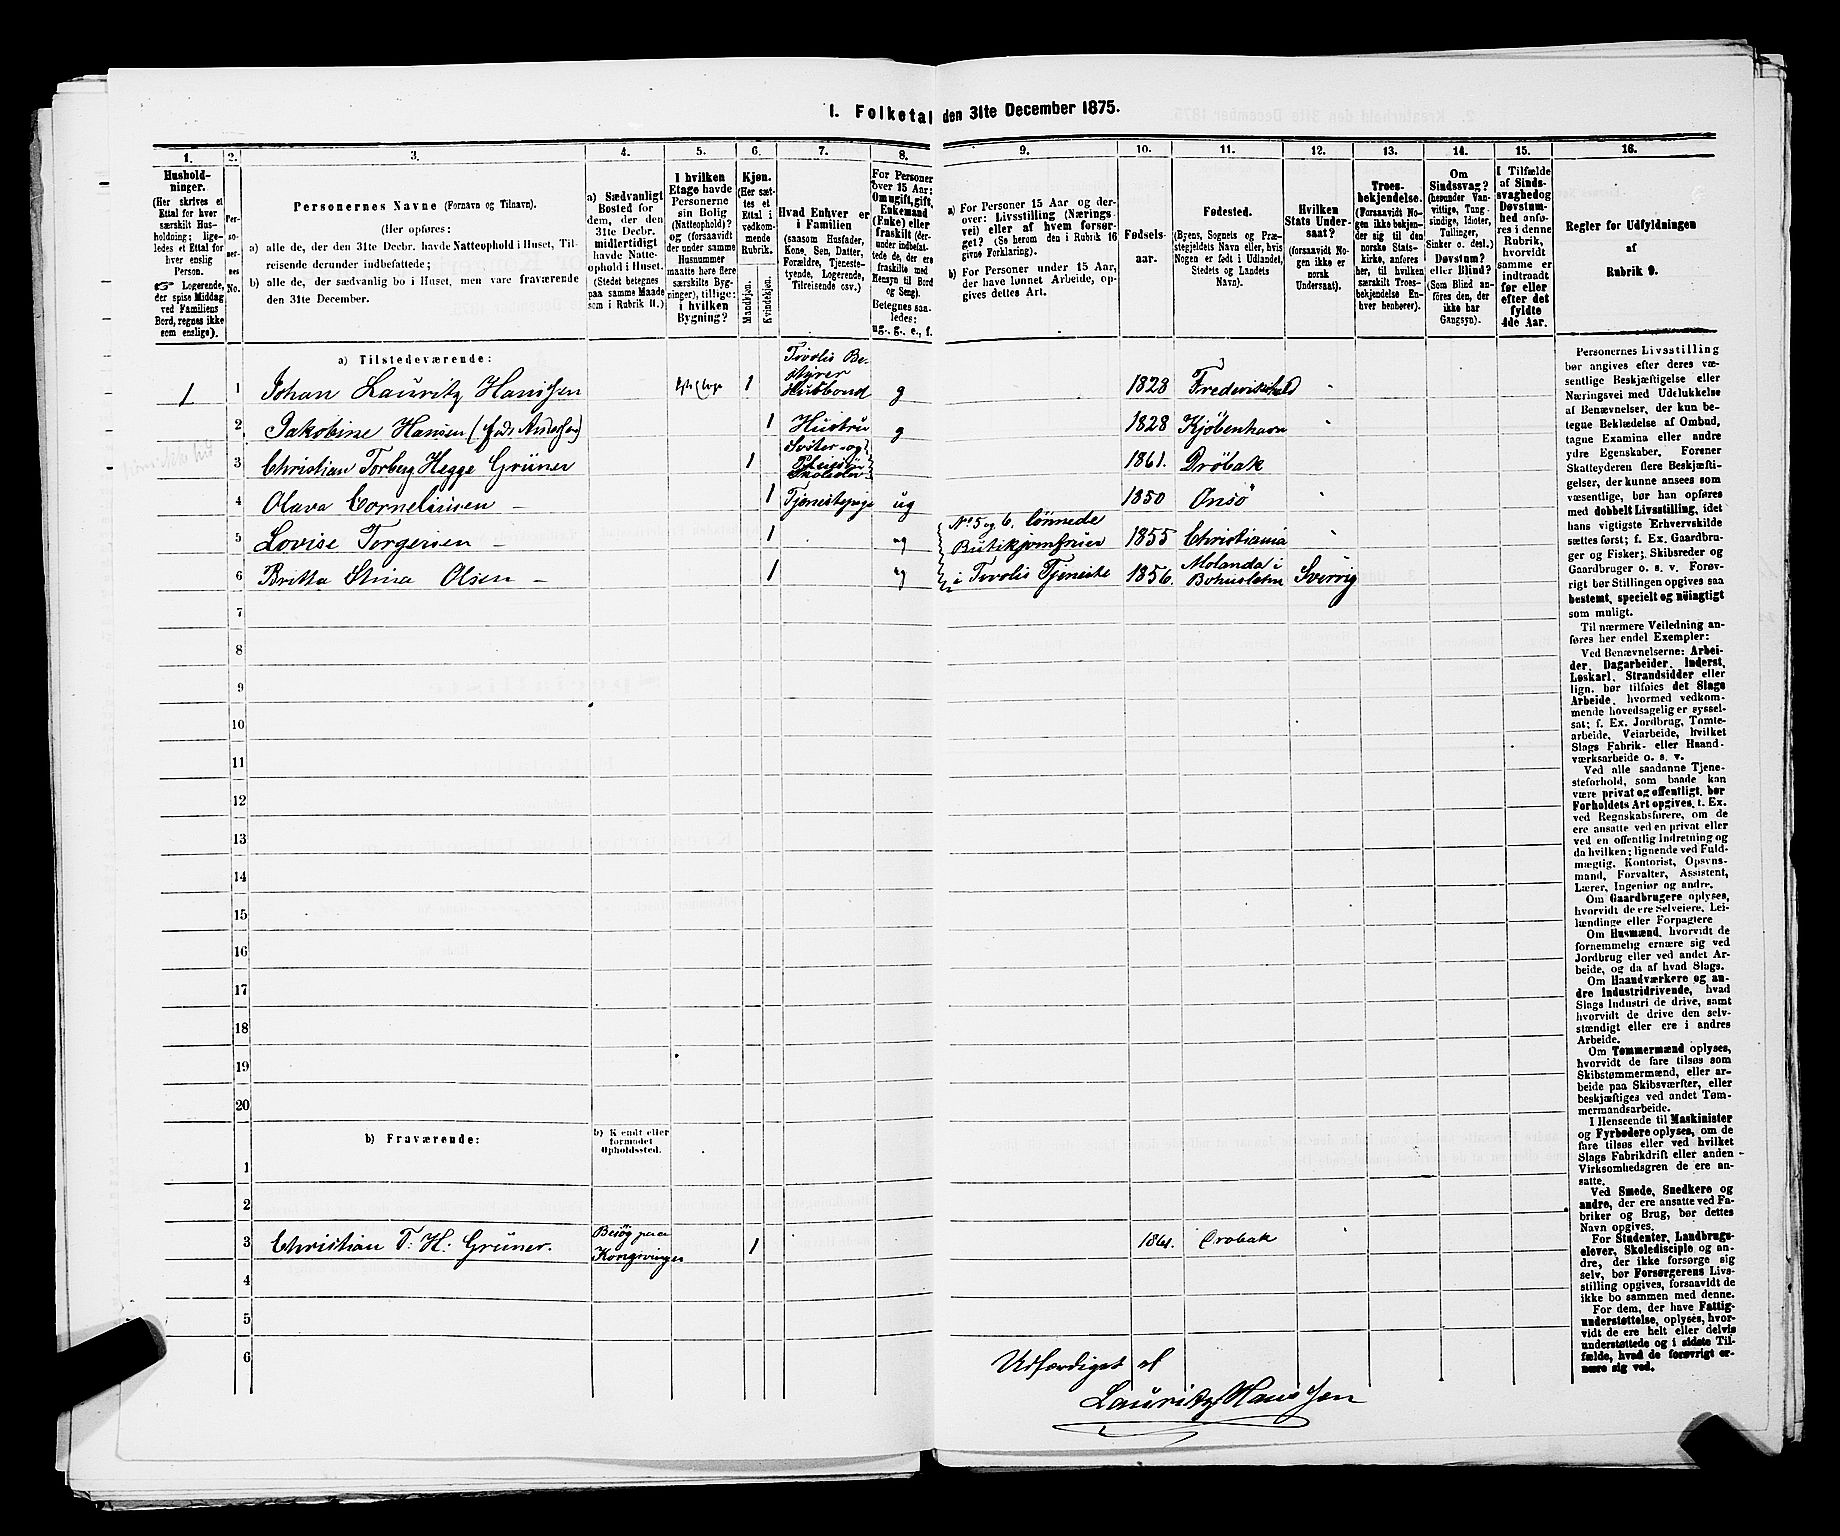 1. Folketal den 31te December 1875.
1.
Hushold-
ninger.
(Her skrives et
Ettal for hver
særskilt Hus-
holdning; lige-
ledes et Ettal for
hver enslig
Person.
Logerende,
der spise Middag
ved Familiens
Bord, regnes ikke
som enslige).
2.
Per-
so-
ner-
nes
No.
3.
Personernes Navne (Fornavn og Tilnavn).
(Her opføres:
a) alle de, der den 31te Decbr. havde Natteophold i Huset, Til-
reisende derunder indbefattede;
b) alle de, der sædvanlig bo i Huset, men vare fraværende
den 31te December.
4.
a) Sædvanligt
Bosted for
dem, der den
31te Decbr.
midlertidigt
havde Natte-
ophold i Huset.
(Stedet betegnes
paa samme Maade
som i Rubrik 11.)
5.
I hvilken
Etage havde
Personerne
sin Bolig
(Natteophold)?
og (forsaavidt
der under samme
Husnummer
maatte høre flere
særskilte Byg-
ninger), tillige:
i hvilken
Bygning?
6.
Kjøn.
(Her sæt-
tes et
Ettal i
vedkom-
mende
Rubrik.
Mandkjøn.
Kvindekjøn.
7.
Hvad Enhver er
i Familien
(saasom Husfader,
Kone, Søn, Datter,
Forældre, Tjeneste-
tyende, Logerende,
Tilreisende osv.)
8.
For Personer
over 15 Aar:
Om ugift, gift,
Enkemand
(Enke) eller
fraskilt (der-
under indbefat-
tede de, der ere
fraskilte med
Hensyn til Bord
og Seng).
Betegnes saa-
ledes:
ug., g., e., f.
9.
a) For Personer 15 Aar og der-
over: Livsstilling (Nærings-
vei) eller af hvem forsør-
get? (Se herom den i Rubrik 16
givne Forklaring).
b) For Personer under 15 Aar,
der have lønnet Arbeide, op-
gives dettes Art.
10.
Fødsels-
aar.
11.
Fødested.
(Byens, Sognets og Præ-
stegjeldets Navn eller, hvis
Nogen er født i Udlandet,
Stedets og Landets
Navn).
12.
Hvilken
Stats Under-
saat?
(forsaavidt No-
gen ikke er
norsk
Undersaat).
13.
Troes-
bekjendelse.
(Forsaavidt No-
gen ikke bekjen-
der sig til den
norske Stats-
kirke, anføres
her, til hvilken
særskilt Troes-
bekjendelse En-
hver henhører).
14.
Om
Sindssvag?
(herunder Van-
vittige, Tung-
sindige, Idioter,
Tullinger,
Sinker o. desl.)
Døvstum?
eller Blind?
(Som Blind an-
føres den, der
ikke har
Gangsyn).
15.
I Tilfælde
af Sinds-
svaghed og
Døvstum-
hed anfø-
res i denne
Rubrik,
hvorvidt
samme er
indtraadt
før eller
efter det
fyldte
4de Aar.
16.
Regler for Udfyldningen
af
Rubrik 9.
a) Tilstedeværende:
1 1 Johan Lauritz Hanssen 1 Tivolis Be-
styrer
Husbond g 1828 Frederikshald
2 Jakobine Hansen 1 Hustru g 1828 Kjöbenhavn
3 Christian Torberg Hegge Grüner 1 Söster- og
Pleiesön
1861. Dröbak
4 Olava Corneliusen – 1 Tjenestepige ug 1850 Onsö
5 Lovise Torgersen – 1 ug No 5 og 6. lönnede
Butikjomfruer 1855 Christiania
6 Britta Stina Olsen – 1 ug i Tivolis Tjeneste 1856. Molanda i
Bohuslehn Sverrig
7
8
9
10
11
12
13
14
15
16
17
18
19
20
b) Fraværende:
b) Kendt eller
formodet
Opholdssted.
1
2
3 Christian T: H: Grüner. Besög paa
Kongsvinger 1 1861. Dröbak
4
5
6
Udfærdiget af
Lauritz Hanssen
Personernes Livsstilling
bør angives efter deres væ-
sentlige Beskjæftigelse eller
Næringsvei med Udelukkelse
af Benævnelser, der kun be-
tegne Beklædelse af Ombud,
tagne Examina eller andre
ydre Egenskaber. Forener
Skatteyderen flere Beskjæfti-
gelser, der kunne ansees som
væsentlige, bør han opføres
med dobbelt Livsstilling, idet
hans vigtigste Erhvervskilde
sættes først; f. Ex. Gaardbru-
ger og Fisker; Skibsreder og
Gaardbruger o. s. v. Forøv-
rigt bør Stillingen opgives saa
bestemt, specielt og nöiagtigt
som muligt.
Til nærmere Veiledning an-
føres her endel Exempler:
Ved Benævnelserne: Arbei-
der, Dagarbeider, Inderst,
Løskarl, Strandsidder eller
lign. bør tilføies det Slags
Arbeide, hvormed vedkom-
mende hovedsagelig er syssel-
sat; f. Ex. Jordbrug, Tomte-
arbeide, Veiarbeide, hvilket
Slags Fabrik- eller Haand-
værksarbeide o. s. v.
Ved alle saadanne Tjene-
steforhold, som baade kan
være privat og offentligt, bør
Forholdets Art opgives, t. Ex.
ved Regnskabsførere, om de
ere ansatte ved en privat eller
ved en offentlig Indretning og
da hvilken; lignende ved Fuld-
mægtig, Kontorist, Opsyns-
mand, Forvalter, Assistent,
Lærer, Ingeniør og andre.
Om Gaardbrugere oplyses,
hvorvidt de ere Selveiere, Lei-
lændinge eller Forpagtere
Om Husmænd, hvorvidt de
fornemmelig ernære sig ved
Jordbrug eller ved andet Ar-
beide, og da af hvad Slags.
Om Haandværkere og an-
dre Industridrivende, hvad
Slags Industri de drive, samt
hvorvidt de drive den selv-
stændigt eller ere i andres
Arbeide.
Om Tømmermænd oplyses,
hvorvidt de fare tilsøs som
Skibstømmermænd, eller ar-
beide paa Skibsværfter, eller
beskjæftiges ved andet Tøm-
mermandsarbeide.
I Henseende til Maskinister
og Fyrbødere oplyses, om de
fare tilsøs eller ved hvilket
Slags Fabrikdrift eller anden
Virksomhedsgren de ere an-
satte.
Ved Smede, Snedkere og
andre, der ere ansatte ved Fa-
briker og Brug, bør dettes
Navn opgives.
For Studenter, Landbrugs-
elever, Skoledisciple og an-
dre, der ikke forsørge sig
selv, bør Forsørgerens Livs-
stilling opgives, forsaavidt de
ikke bo sammen med denne.
For dem, der have Fattig-
understøttelse, oplyses, hvor-
vidt de ere helt eller delvis
understøttede og i sidste Til-
fælde, hvad de forøvrigt er-
nære sig ved.